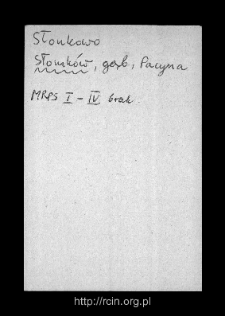 Słonkowo
Słomków, gąb, Pacyna
MRPS I - IV brak
http://rcin.org.pl